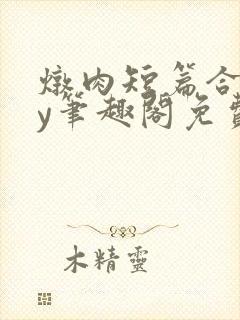 燉肉短篇合
y筆趣閣免費
木精靈